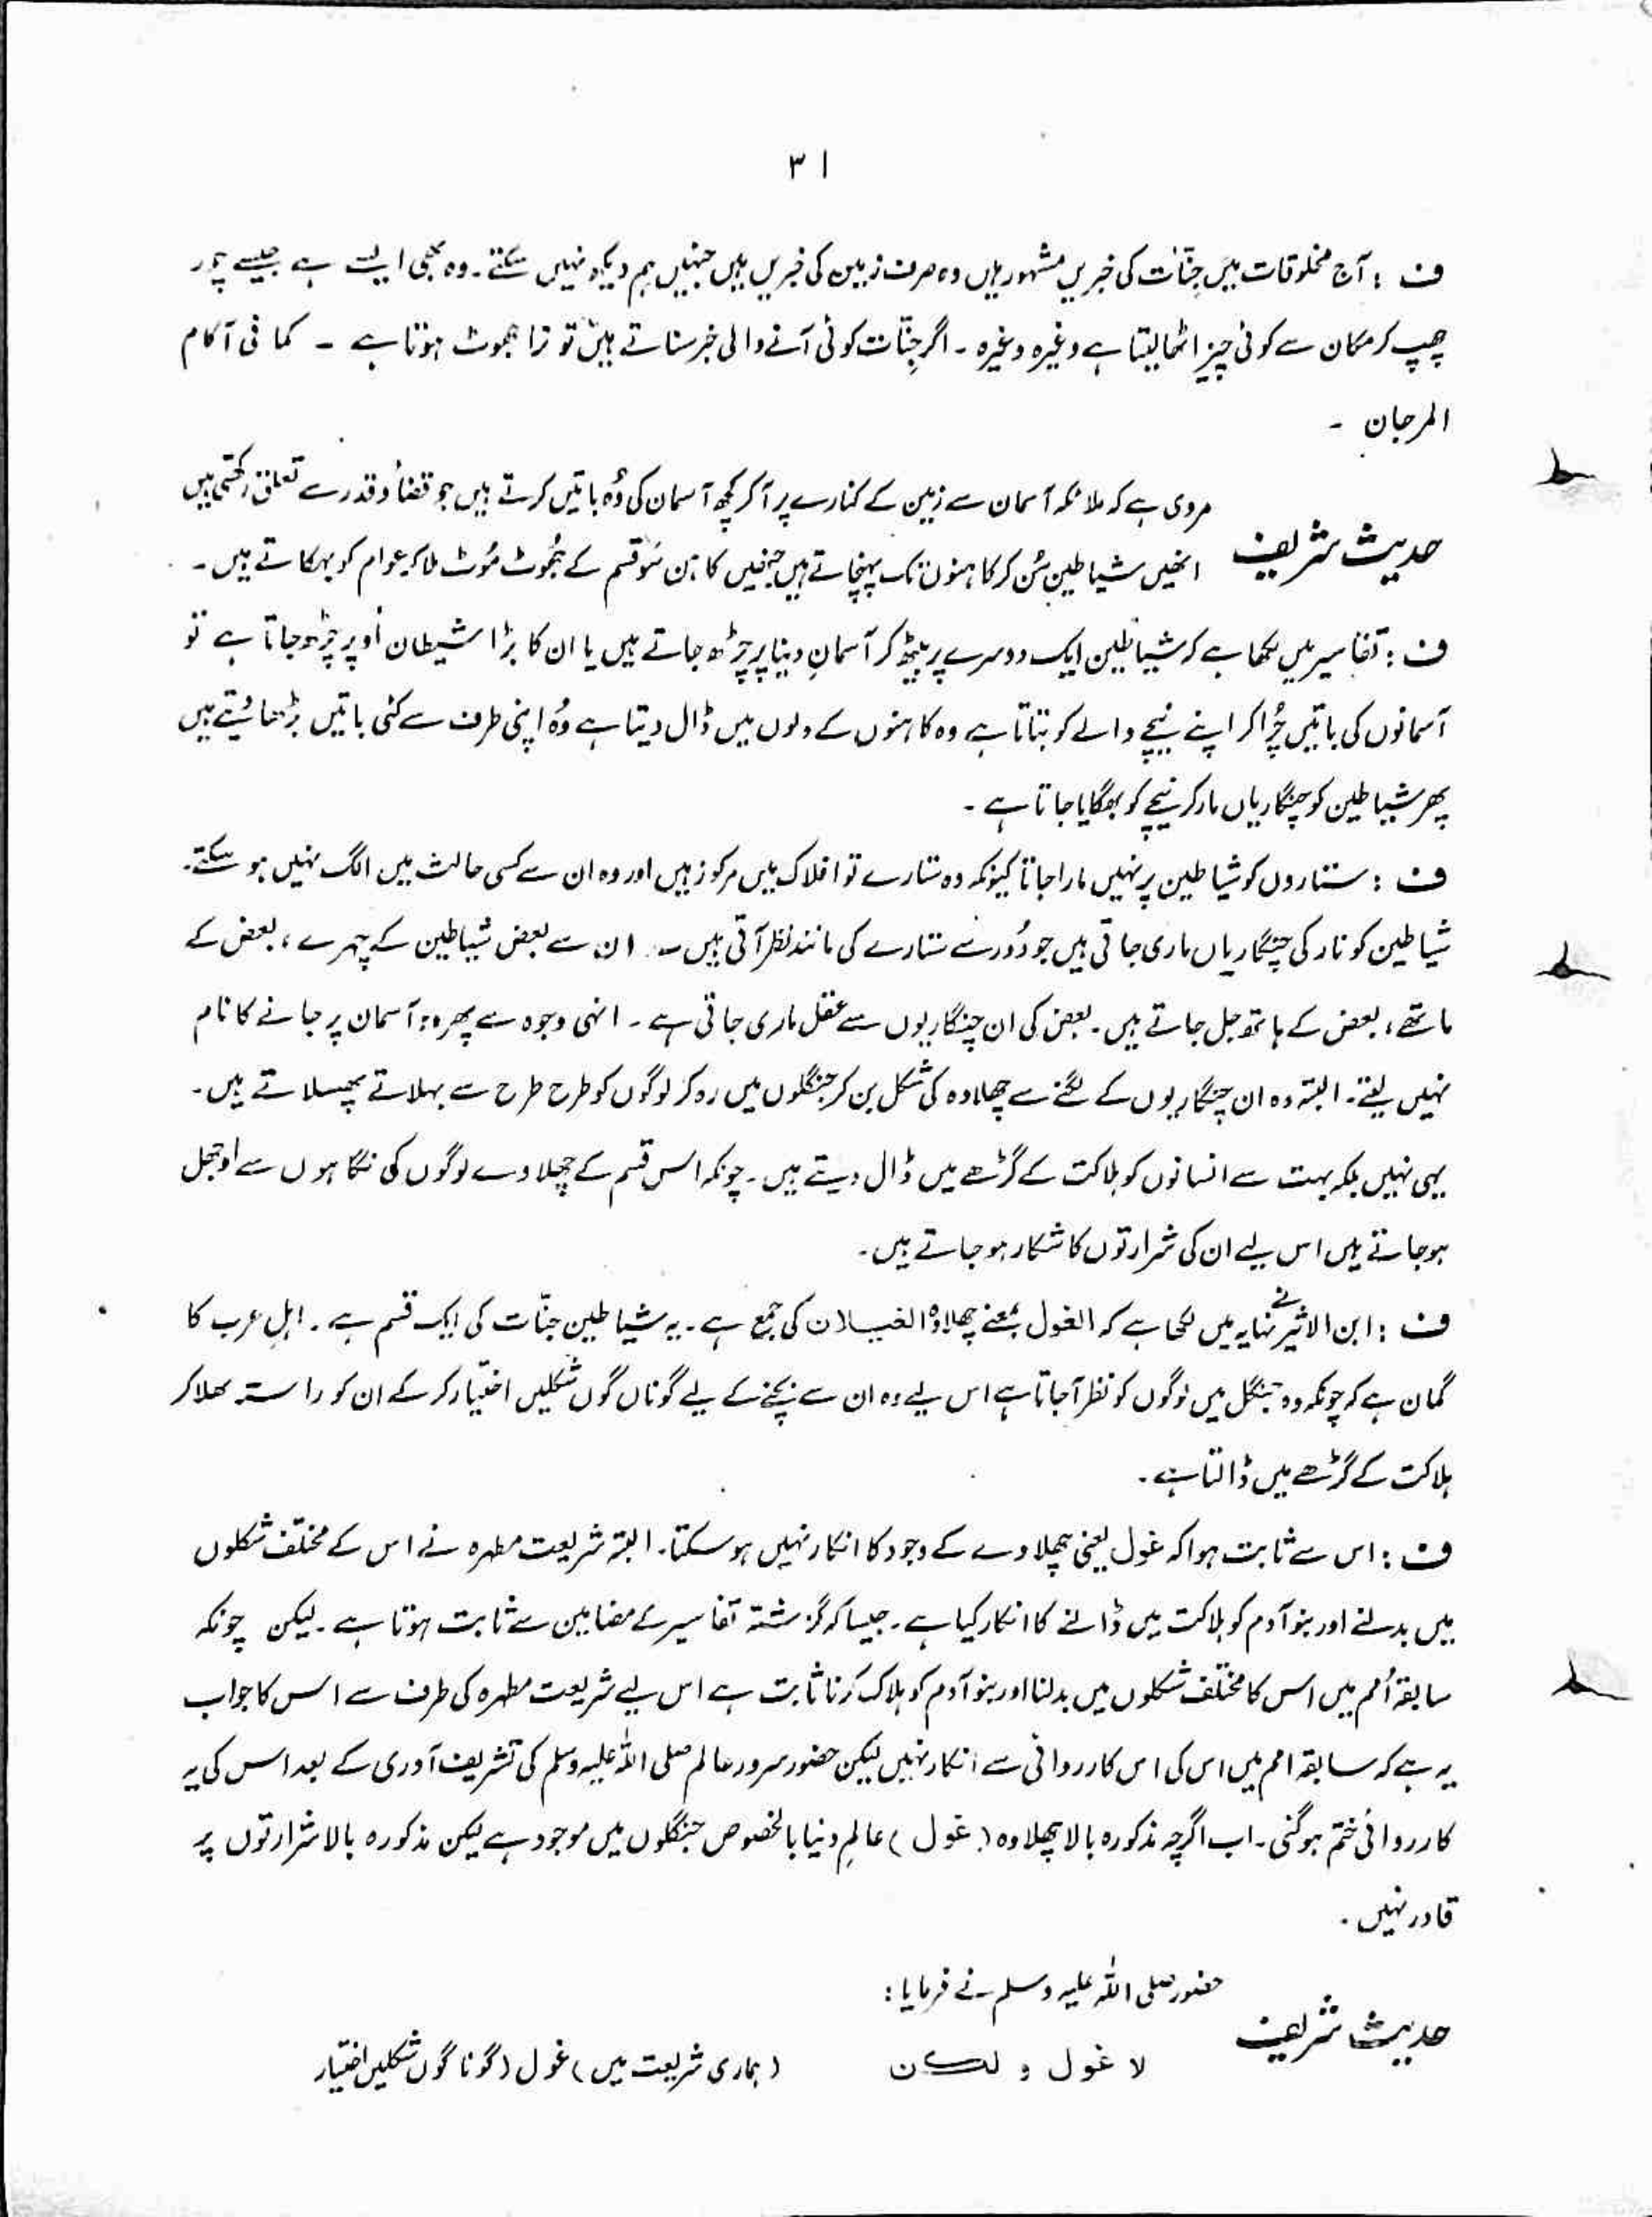 ۳۱
ف : آج مخلوقات میں جنّات کی خبریں مشہور ہیں وہ صرف زمین کی خبریں ہیں جنہیں ہم دیکھ نہیں سکتے۔ وہ بھی ایسے ہے جیسے چور
چھپ کر مکان سے کوئی چیز اٹھا لیتا ہے وغیرہ وغیرہ ۔ اگر جنّات کوئی آنے والی خبر سناتے ہیں تو نرا جھوٹ ہوتا ہے ۔ کما فی آکام
المرجان ۔
مروی ہے کہ ملائکہ آسمان سے زمین کے کنارے پر آکر کچھ آسمان کی وُہ باتیں کرتے ہیں جو قضأ و قدر سے تعلق رکھتی ہیں
حدیث شریف
انھیں شیاطین سُن کر کاہنوں تک پہنچاتے ہیں جنھیں کاہن سَو قسم کے جُھوٹ مُوٹ ملا کر عوام کو بہکاتے ہیں۔
ف : تفاسیر میں لکھا ہے کہ شیاطین ایک دوسرے پر بیٹھ کر آسمانِ دنیا پر چڑھ جاتے ہیں یا ان کا بڑا شیطان اُوپر چڑھ جاتا ہے تو
آسمانوں کی باتیں چُرا کر اپنے نیچے والے کو بتاتا ہے وہ کاہنوں کے دلوں میں ڈال دیتا ہے وُہ اپنی طرف سے کئی باتیں بڑھا دیتے ہیں
پھر شیاطین کو چنگاریاں مار کر نیچے کو بھگایا جاتا ہے ۔
ف : ستاروں کو شیاطین پر نہیں مارا جاتا کیونکہ وہ ستارے تو افلاک میں مرکوز ہیں اور وہ ان سے کسی حالت میں الگ نہیں ہو سکتے۔
شیاطین کو نار کی چنگاریاں ماری جاتی ہیں جو دُور سے ستارے کی مانند نظر آتی ہیں ۔ ان سے بعض شیاطین کے چہرے ، بعض کے
ماتھے ، بعض کے ہاتھ جل جاتے ہیں ۔ بعض کی ان چنگاریوں سے عقل ماری جاتی ہے ۔ انہی وجوہ سے پھر وہ آسمان پر جانے کا نام
نہیں لیتے ۔ البتہ وہ ان چنگاریوں کے لگنے سے چھلاوہ کی شکل بن کر جنگلوں میں رہ کر لوگوں کو طرح طرح سے بہلاتے پھسلاتے ہیں۔
یہی نہیں بلکہ بہت سے انسانوں کو ہلاکت کے گڑھے میں ڈال دیتے ہیں ۔ چونکہ اس قسم کے چھلاوے لوگوں کی نگاہوں سے اوجھل
ہوجاتے ہیں اس لیے ان کی شرارتوں کا شکار ہو جاتے ہیں۔
ف : ابن الاثیر نے نہایہ میں لکھا ہے کہ الغول بمعنے چھلاوہ الغیلان کی جمع ہے ۔ یہ شیاطین جنّات کی ایک قسم ہے ۔ اہلِ عرب کا
گمان ہے کہ چونکہ وہ جنگل میں لوگوں کو نظر آجاتا ہے اس لیے وہ ان سے بچنے کے لیے گوناں گوں شکلیں اختیار کر کے ان کو راستہ بھلا کر
ہلاکت کے گڑھے میں ڈالتا ہے۔
ف : اس سے ثابت ہوا کہ غول یعنی چھلاوے کے وجود کا انکار نہیں ہو سکتا۔ البتہ شریعت مطہرہ نے اس کے مختلف شکلوں
میں بدلنے اور بنو آدم کو ہلاکت میں ڈالنے کا انکار کیا ہے ۔ جیسا کہ گزشتہ تفاسیر کے مضامین سے ثابت ہوتا ہے ۔ لیکن چونکہ
سابقہ اُمم میں اس کا مختلف شکلوں میں بدلنا اور بنو آدم کو ہلاک کرنا ثابت ہے اس لیے شریعت مطہرہ کی طرف سے اس کا جواب
یہ ہے کہ سابقہ امم میں اس کی اس کارروائی سے انکار نہیں لیکن حضور سرور عالم صلی اللہ علیہ وسلم کی تشریف آوری کے بعد اس کی یہ
کارروائی ختم ہوگئی ۔ اب اگرچہ مذکورہ بالا چھلاوہ ( غول ) عالمِ دنیا بالخصوص جنگلوں میں موجود ہے لیکن مذکورہ بالا شرارتوں پر
قادر نہیں ۔
حضور صلی اللہ علیہ وسلم نے فرمایا :
حدیث شریف
لا غول و لکن (ہماری شریعت میں) غول (گوناگوں شکلیں اختیار